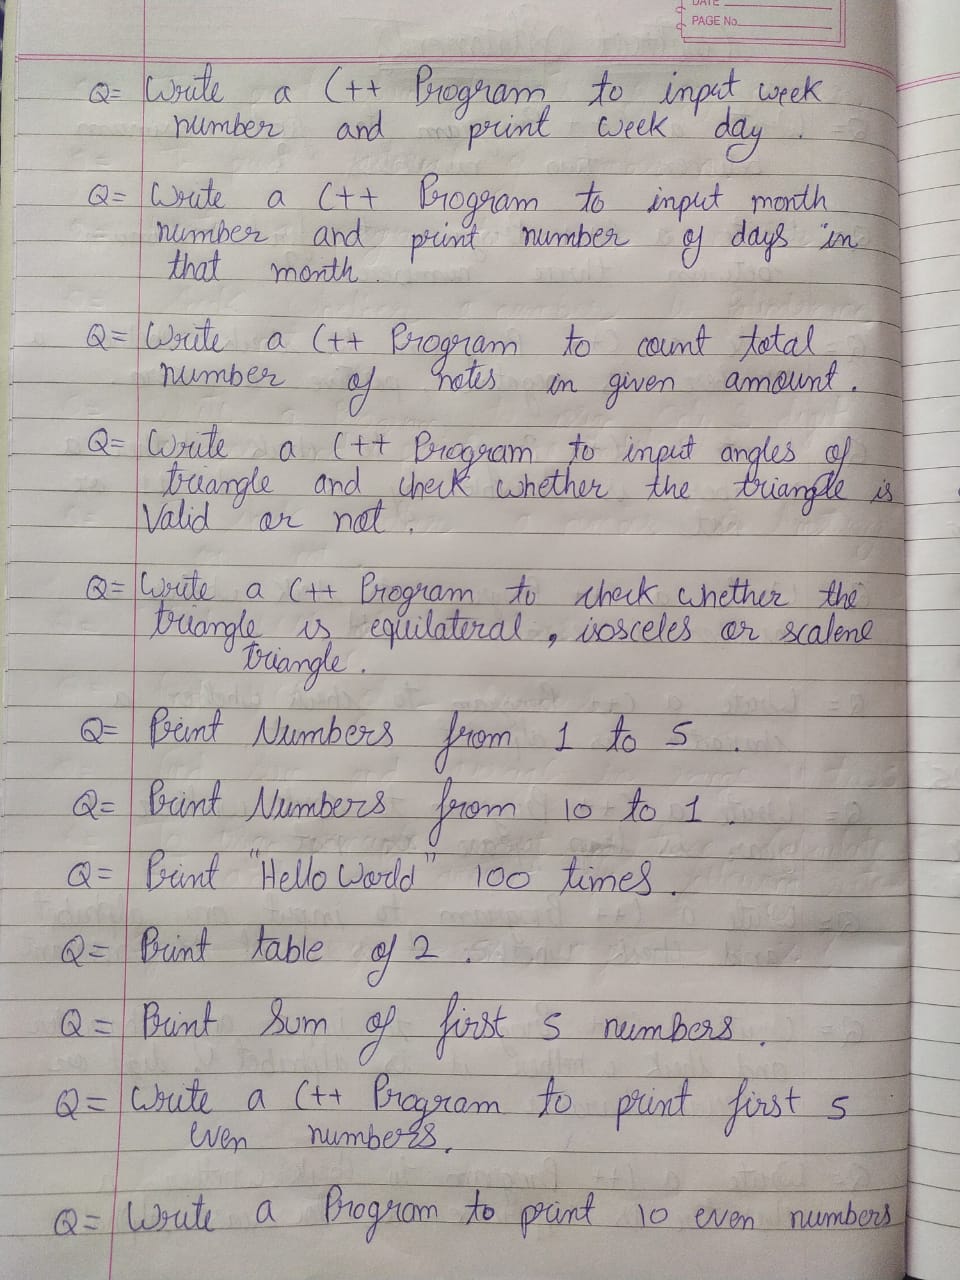 DATE
PAGE No.
Q= Write a C++ Program to input week
number and print week day.
Q= Write a C++ Program to input month
number and print number of days in
that month.
Q= Write a C++ Program to count total
number of notes in given amount.
Q= Write a C++ Program to input angles of
triangle and check whether the triangle is
Valid or not.
Q= Write a C++ Program to check whether the
triangle is equilateral, isosceles or scalene
triangle.
Q= Print Numbers from 1 to 5.
Q= Print Numbers from 10 to 1.
Q= Print "Hello World" 100 times.
Q= Print table of 2.
Q= Print Sum of first 5 numbers.
Q= Write a C++ Program to print first 5
even numbers.
Q= Write a Program to print 10 even numbers